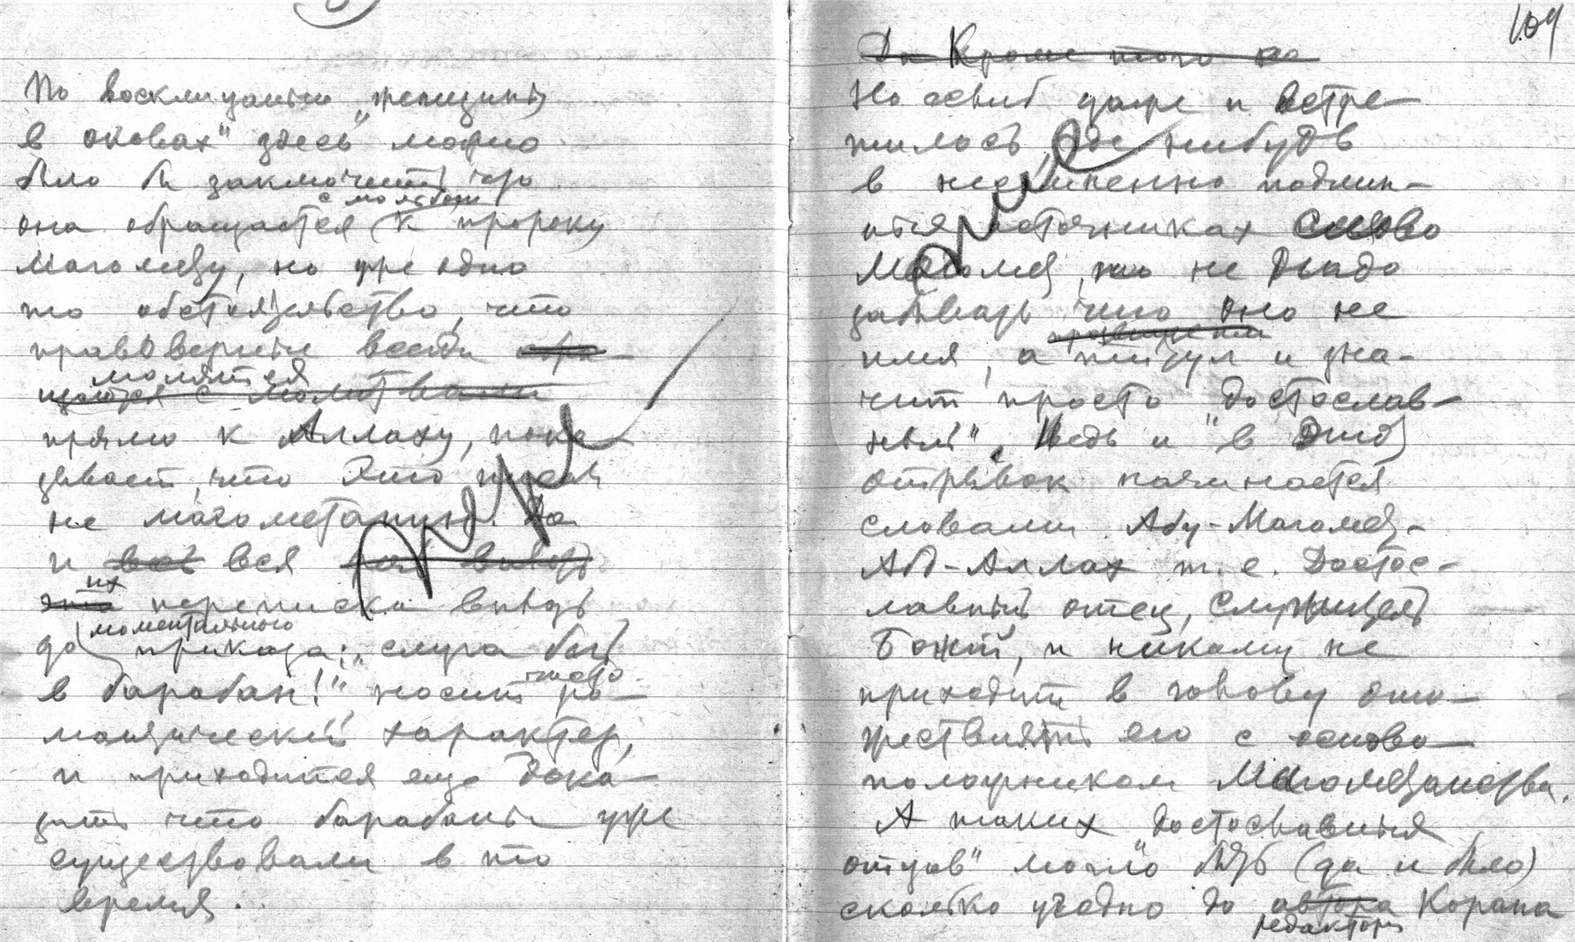 По восклицанию „женщины
в оковах" здесь можно
было бы заключить что
с мольбою
она обращается к пророку
Магомеду, но уже одно
то обстоятельство, что
правоверные всегда
молятся
щаются с молитвами
прямо к Аллаху, пока-
зывает, что это писал
не магометанин. Да
и все вся
их
эта переписка вплоть
моментального
до приказа: „слуга бей
чисто
в барабан!" носит ро-
мантический характер,
и приходится еще дока-
зать что барабаны уже
существовали в то
время.
104
Да Кроме того не
Но если б даже и встре-
тилось, где нибудь
в несомненно подлин-
ных источниках слово
Магомед, то не надо
забывать что оно не
имя, а титул и зна-
чит просто „достослав-
ный". Ведь и в этот
отрывок начинается
словами Абу-Магомед-
Абд-Аллах т. е. Достос-
лавный отец, служитель
Божий, и никому не
приходит в голову ото-
жествлять его с осново-
положником Магомеданства.
А таких „достославных
отцов" могло быть (да и было)
сколько угодно до автора Корана
редактора